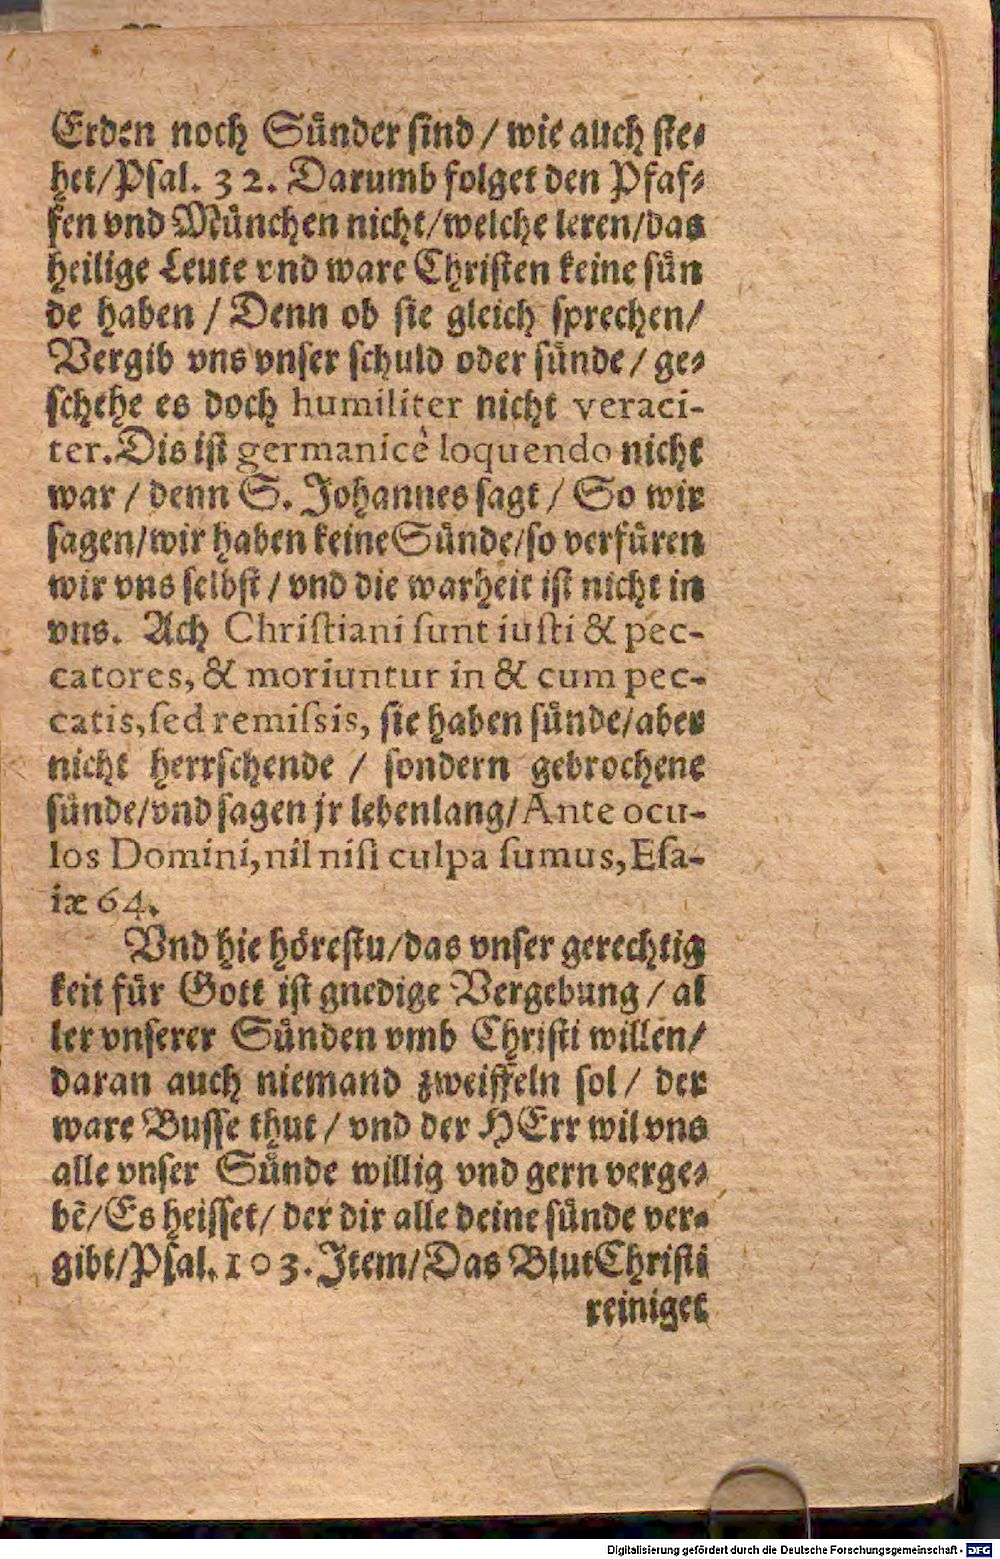 Erden noch Sünder sind / wie auch ste-
het/Psal. 32. Darumb folget den Pfaf-
fen vnd München nicht/welche leren/das
heilige Leute vnd ware Christen keine sün
de haben / Denn ob sie gleich sprechen/
Vergib vns vnser schuld oder sünde / ge-
schehe es doch humiliter nicht veraci-
ter. Dis ist germanicè loquendo nicht
war / denn S. Johannes sagt / So wir
sagen/wir haben keine Sünde/so verfüren
wir vns selbst / vnd die warheit ist nicht in
vns. Ach Christiani sunt iusti & pec-
catores, & moriuntur in & cum pec-
catis, sed remissis, sie haben sünde/aber
nicht herrschende / sondern gebrochene
sünde/vnd sagen jr lebenlang/Ante ocu-
los Domini, nil nisi culpa sumus, Esa-
iæ 64.
Vnd hie hörestu/das vnser gerechtig
keit für Gott ist gnedige Vergebung / al
ler vnserer Sünden vmb Christi willen/
daran auch niemand zweiffeln sol / der
ware Busse thut / vnd der HErr wil vns
alle vnser Sünde willig vnd gern verge-
bẽ/Es heisset/ der dir alle deine sünde ver-
gibt/Psal. 103. Item/Das Blut Christi
reiniget
Digitalisierung gefördert durch die Deutsche Forschungsgemeinschaft - DFG